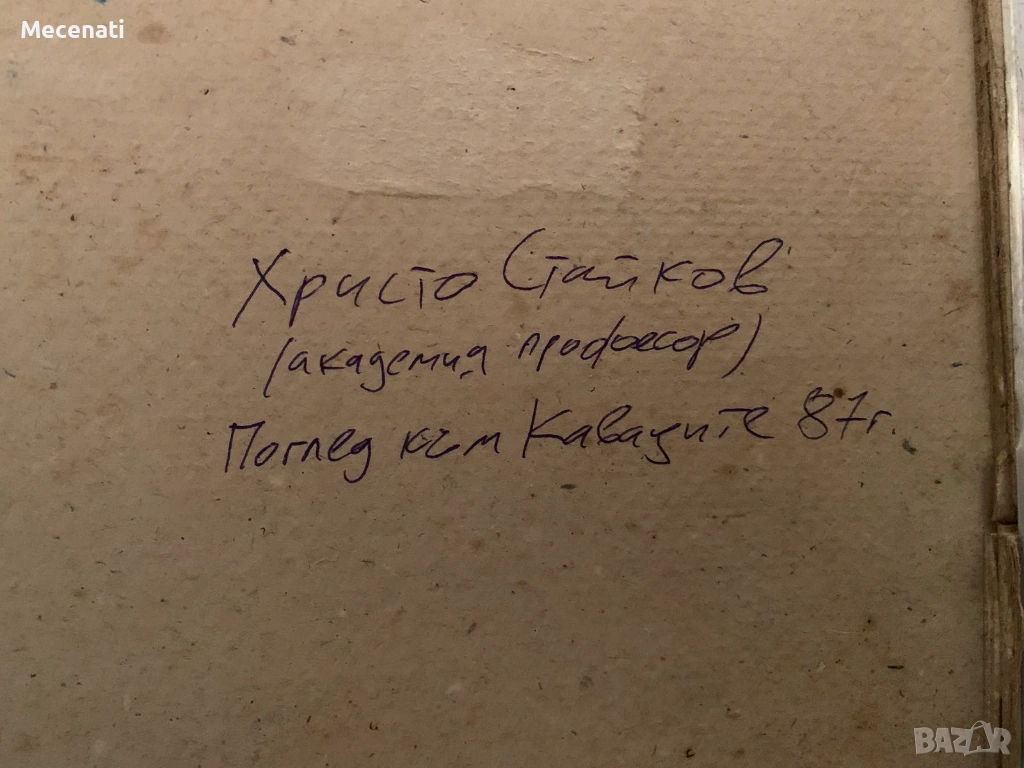 Mecenati
Христо Стайков
(академия професор)
Поглед към Кавадите 87г.
BAZAR